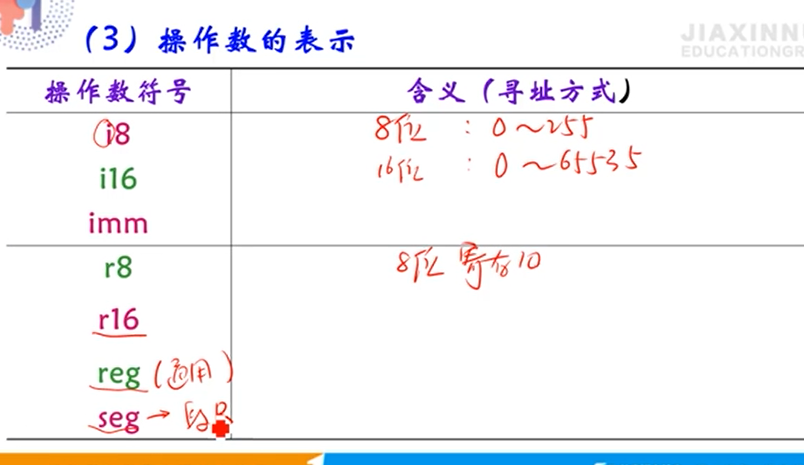 (3) 操作数的表示
JIAXINNU
EDUCATIONGR
操作数符号 含义 (寻址方式)
i8 8位 : 0~255
i16 16位 : 0~65535
imm
r8 8位 寄存
r16
reg (通用)
seg → 段